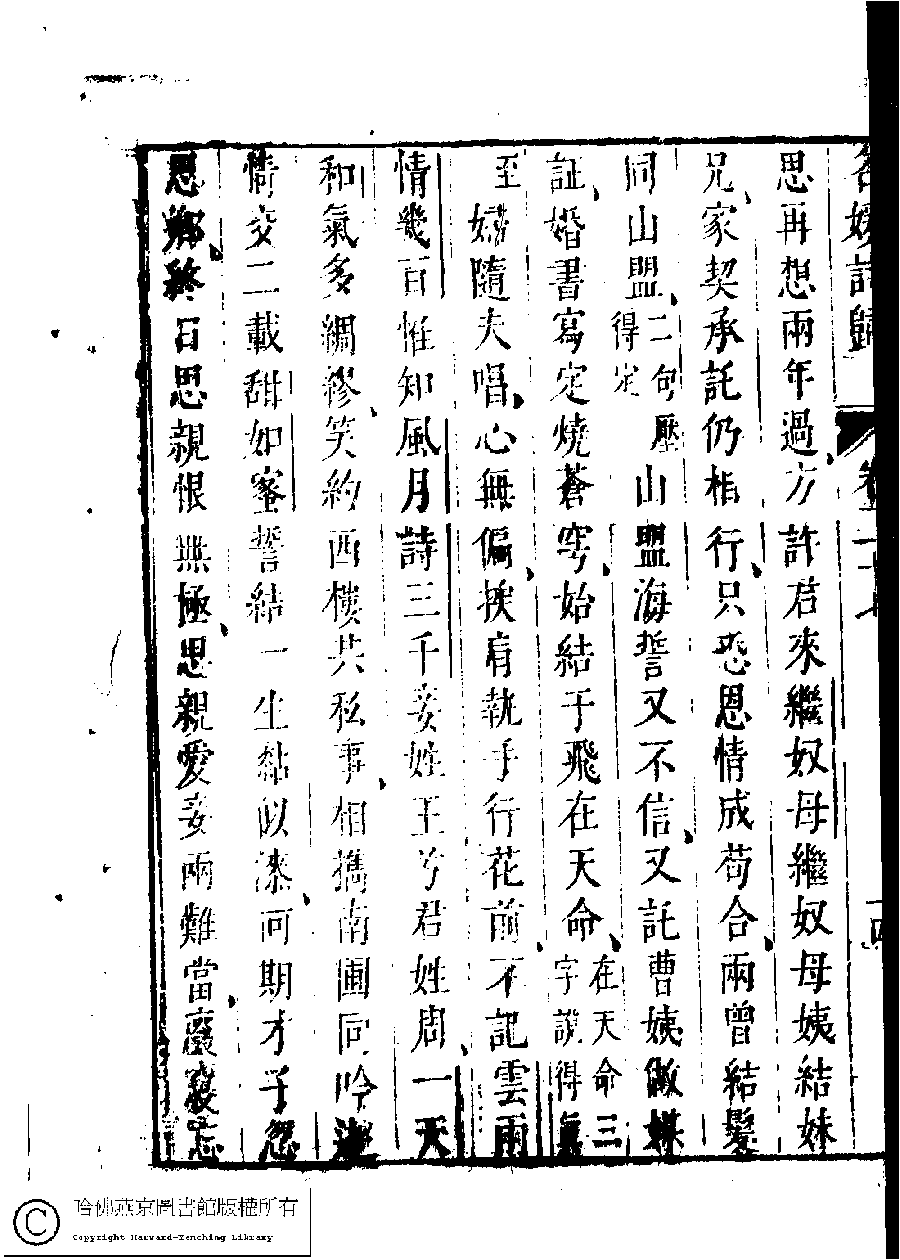 名媛詩歸 卷二十七 十四
思再想兩年過方許君來繼奴母繼奴母姨結妹
兄家契承託仍相行只恐恩情成苟合兩曾結髮
同山盟二句壓得定山盟海誓又不信又託曹姨做媒
証婚書寫定燒蒼穹始結于飛在天命在天命三字說得氣
至婦隨夫唱心無偏挨肩執手行花前不記雲雨
情幾百惟知風月詩三千妾姓王兮君姓周一天
和氣多綢繆笑約西樓共私事相攜南圃同吟
情交二載甜如蜜誓結一生黏似漆何期才子忽
思鄉終日思親恨無極思親愛妾兩難當廢寢忘
哈佛燕京圖書館版權所有
Copyright Harvard-Yenching Library